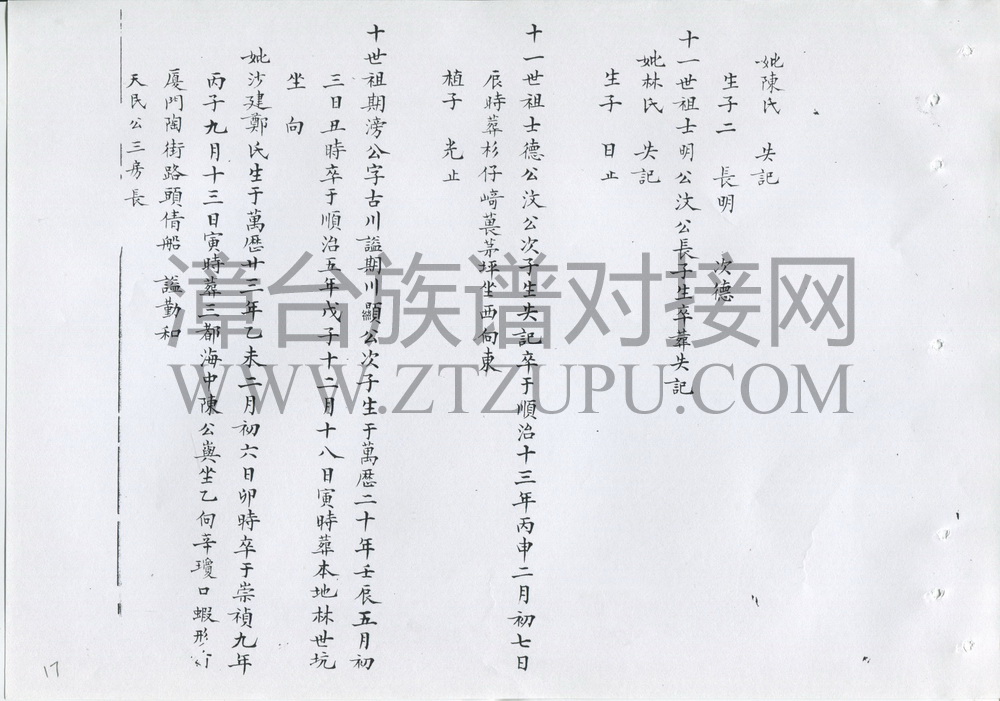 妣陳氏 失記
生子二 長明 次德
十一世祖士明公汶公長子生卒葬失記
妣林氏 失記
生子 日止
十一世祖士德公汶公次子生失記卒于順治十三年丙申二月初七日
辰時葬杉仔崎 茅坪坐西向東
植子 光止
十世祖期滂公字古川謚期川顯公次子生于萬曆二十年壬辰五月初
三日丑時卒于順治五年戊子十二月十八日寅時葬本地林世坑
坐 向
妣沙建鄭氏生于萬曆廿三年乙未二月初六日卯時卒于崇禎九年
丙子九月十三日寅時葬三都海中陳公嶼坐乙向辛瓊口蝦形
廈門陶街路頭倩船 謚勤和
天民公三房長
漳台族谱对接网
WWW.ZTZUPU.COM
17